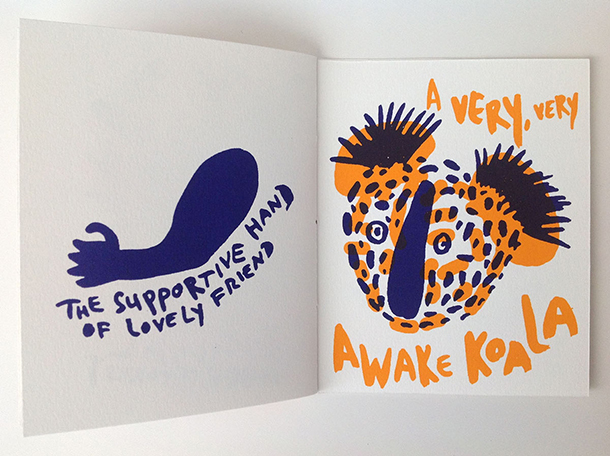 THE SUPPORTIVE HAND
OF LOVELY FRIEND
A VERY, VERY
AWAKE KOALA